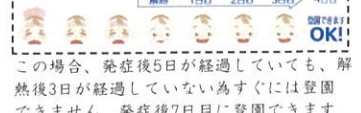 解熱 1日目 2日目 3日目 4日目
登園できます
OK!
この場合、発症後5日が経過していても、解
熱後3日が経過していない為すぐには登園
できません。発症後7日目に登園できます